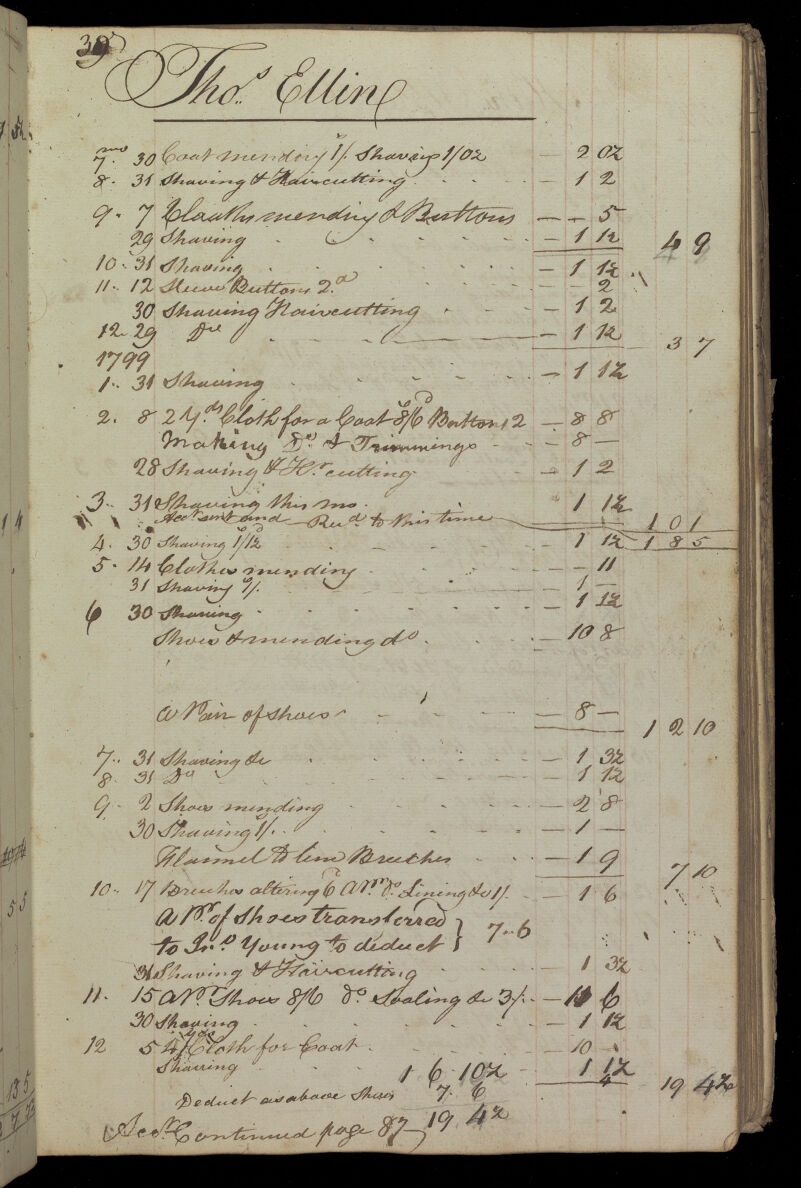 39
Thos. Ellin
mo
7. 30 Coat mending 1/. Shaving 1/0½ — 2 0½
8. 31 Shaving & Haircutting — 1 2
9. 7 Cloaths mending & Buttons — — 5
29 Shaving — 1 1½ 4 9
10. 31 Shaving — 1 1½
11. 12 Sleeve Buttons 2d — — 2
30 Shaving Haircutting — 1 2
12. 29 Do — 1 1½ 3 7
1799
1. 31 Shaving — 1 1½
2. 8 2 Yds Cloth for a Coat 8/6 Buttons 2 — 8 8
Making Do. & Trimmings — 8 —
28 Shaving & Hr. cutting — 1 2
3. 31 Shaving this mo. 1 1½
Acct sent and Recd to this time 1 0 1
4. 30 Shaving 1/1½ — 1 1½ 1 8 5
5. 14 Clothes mending — 11
31 Shaving 1/. 1 —
6 30 Shaving — 1 1½
Shoes & mending do — 10 8
a Pair of Shoes — 8 — 1 2 10
7. 31 Shaving &c — 1 3½
8. 31 Do — 1 1½
9. 2 Shoes mending — 2 8
30 Shaving 1/. — 1 —
Flannel to line Breeches — 1 9 7 10
10. 17 Breeches altering 6 a Pr. do. Lining &c 1/. — 1 6
a Pr. of Shoes transferred
to Jno. Young to deduct } 7.. 6
31 Shaving & Haircutting — 1 3½
11. 15 a Pr. Shoes 8/6 do. Soaling &c 3/. — 11 6
30 Shaving — 1 1½
12 5 4 yds Cloth for Coat — 10
Shaving 1 1½
1 6 10½ 19 4½
Deduct as above Shoes 7. 6
19 4½
Acct. Continued page 87